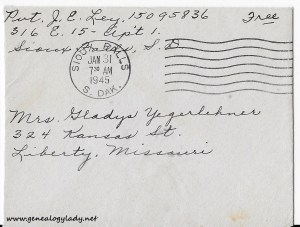 Pvt. J.E. Ley, 15095836
Free
316 E. 15 - Apt 1.
Sioux Falls, S.D
SIOUX FALLS
JAN 31
7 30 AM
1945
S. DAK.
Mrs. Gladys Yegerlehner
324 Kansas St.
Liberty, Missouri
www.genealogylady.net